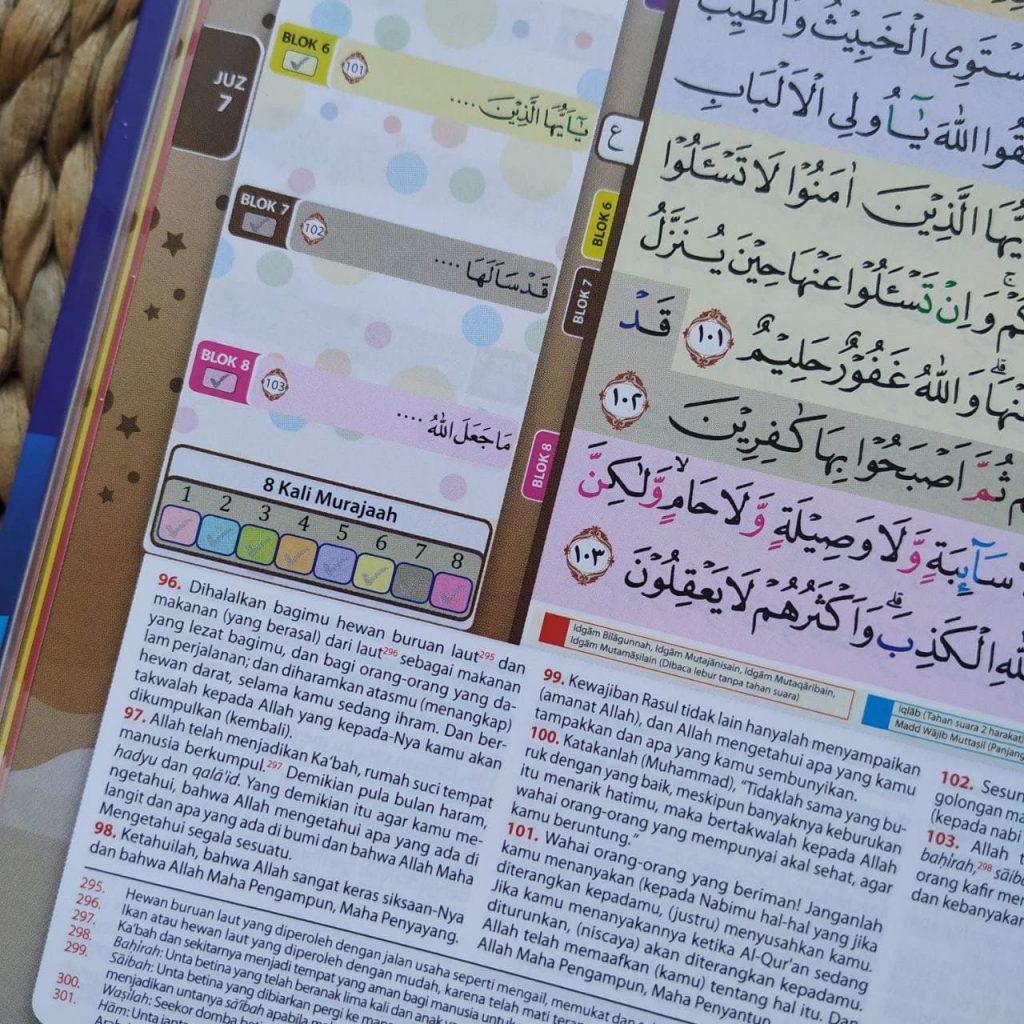 JUZ
7
BLOK 6
101
يٰٓاَيُّهَا الَّذِيْنَ ....
BLOK 7
102
قَدْ سَاَلَهَا ....
BLOK 8
103
مَا جَعَلَ اللّٰهُ ....
8 Kali Murajaah
1 2 3 4 5 6 7 8
ع
BLOK 6
BLOK 7
BLOK 8
الْخَبِيْثُ وَالطَّيِّبُ
اللّٰهَ يٰٓاُولِى الْاَلْبَابِ
الَّذِيْنَ اٰمَنُوْا لَا تَسْـَٔلُوْا
وَاِنْ تَسْـَٔلُوْا عَنْهَا حِيْنَ يُنَزَّلُ
وَاللّٰهُ غَفُوْرٌ حَلِيْمٌ ١٠١ قَدْ
ثُمَّ اَصْبَحُوْا بِهَا كٰفِرِيْنَ ١٠٢
سَاۤىِٕبَةٍ وَّلَا وَصِيْلَةٍ وَّلَا حَامٍ وَّلٰكِنَّ
الْكَذِبَ وَاَكْثَرُهُمْ لَا يَعْقِلُوْنَ ١٠٣
Idgām Bilāgunnah, Idgām Mutajānisain, Idgām Mutaqāribain,
Idgām Mutamāṡilain (Dibaca lebur tanpa tahan suara)
Iqlāb (Tahan suara 2 harakat
Madd Wājib Muttaṣil (Panjang
96. Dihalalkan bagimu hewan buruan laut295 dan
makanan (yang berasal) dari laut296 sebagai makanan
yang lezat bagimu, dan bagi orang-orang yang da-
lam perjalanan; dan diharamkan atasmu (menangkap)
hewan darat, selama kamu sedang ihram. Dan ber-
takwalah kepada Allah yang kepada-Nya kamu akan
dikumpulkan (kembali).
97. Allah telah menjadikan Ka'bah, rumah suci tempat
manusia berkumpul.297 Demikian pula bulan haram,
hadyu dan qalā'id. Yang demikian itu agar kamu me-
ngetahui, bahwa Allah mengetahui apa yang ada di
langit dan apa yang ada di bumi dan bahwa Allah Maha
Mengetahui segala sesuatu.
98. Ketahuilah, bahwa Allah sangat keras siksaan-Nya
dan bahwa Allah Maha Pengampun, Maha Penyayang.
99. Kewajiban Rasul tidak lain hanyalah menyampaikan
(amanat Allah), dan Allah mengetahui apa yang kamu
tampakkan dan apa yang kamu sembunyikan.
100. Katakanlah (Muhammad), "Tidaklah sama yang bu-
ruk dengan yang baik, meskipun banyaknya keburukan
itu menarik hatimu, maka bertakwalah kepada Allah
wahai orang-orang yang mempunyai akal sehat, agar
kamu beruntung."
101. Wahai orang-orang yang beriman! Janganlah
kamu menanyakan (kepada Nabimu hal-hal yang jika
diterangkan kepadamu, (justru) menyusahkan kamu.
Jika kamu menanyakannya ketika Al-Qur'an sedang
diturunkan, (niscaya) akan diterangkan kepadamu.
Allah telah memaafkan (kamu) tentang hal itu. Dan
Allah Maha Pengampun, Maha Penyantun.
102. Sesun
golongan ma
(kepada nabi
103. Allah t
baḥīrah,298 sāib
orang kafir me
dan kebanyakan
295. Hewan buruan laut yang diperoleh dengan jalan usaha seperti mengail, memukat dan
296. Ikan atau hewan laut yang diperoleh dengan mudah, karena telah mati
297. Ka'bah dan sekitarnya menjadi tempat yang aman bagi manusia untuk
298. Baḥīrah: Unta betina yang telah beranak lima kali dan anak
299. Sāibah: Unta betina yang dibiarkan pergi ke
menjadikan untanya sāibah apabila
300. Waṣīlah: Seekor domba
301. Hām: Unta